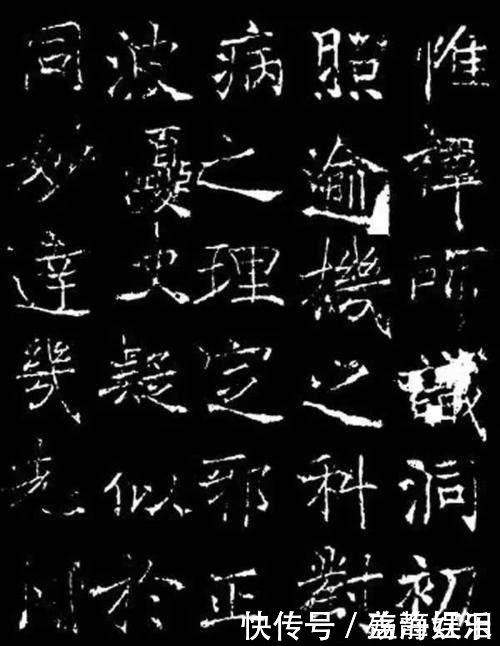 惟禪師識洞初
照逾機之科對
病之理定邪正
波憂史疑似於
同妙達幾先
快传号 /